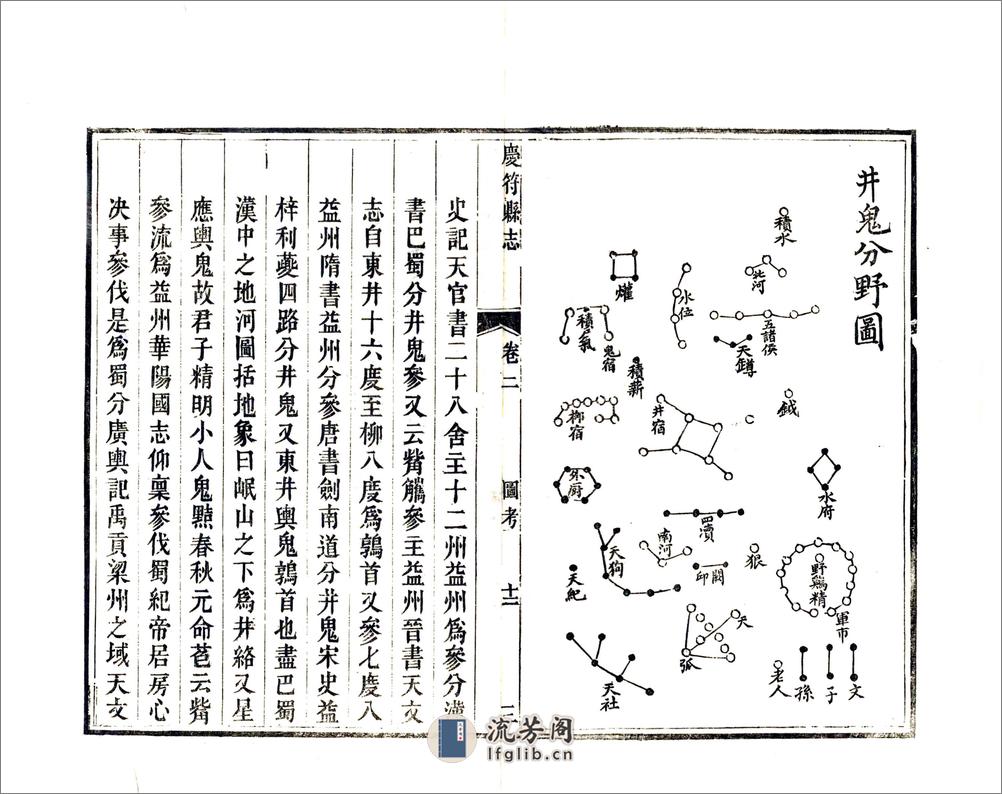 井鬼分野圖
積水
北河
五諸侯
天罇
鉞
水府
水位
爟
積氣
鬼宿
積薪
井宿
柳宿
外廚
四瀆
南河
闕
印
狼
天狗
天紀
野鷄精
軍市
天
弧
天社
老人
孫
子
丈
慶符縣志
卷二
圖考
十二
三
史記天官書二十八舍主十二州益州爲參分漢
書巴蜀分井鬼參又云觜觿參主益州晉書天文
志自東井十六度至柳八度爲鶉首又參七度入
益州隋書益州分參唐書劍南道分井鬼宋史益
梓利夔四路分井鬼又東井輿鬼鶉首也盡巴蜀
漢中之地河圖括地象曰岷山之下爲井絡又星
應輿鬼故君子精明小人鬼黠春秋元命苞云觜
參流爲益州華陽國志仰稟參伐蜀紀帝居房心
决事參伐是爲蜀分廣輿記禹貢梁州之域天文
流芳阁
lfglib.cn